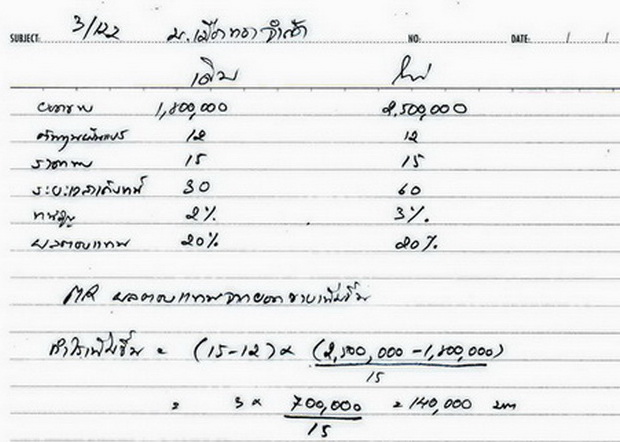 SUBJECT: 3/122 บ.เมืองทองจำกัด NO: DATE: / /
เดิม ใหม่
ยอดขาย 1,800,000 2,500,000
ต้นทุนผันแปร 12 12
ราคาขาย 15 15
ระยะเวลาเก็บหนี้ 30 60
หนี้สูญ 2% 3%
ผลตอบแทน 20% 20%
ผลตอบแทนจากยอดขายเพิ่มขึ้น
กำไรเพิ่มขึ้น = (15-12) × (2,500,000 - 1,800,000)
15
= 3 × 700,000 = 140,000 บาท
15